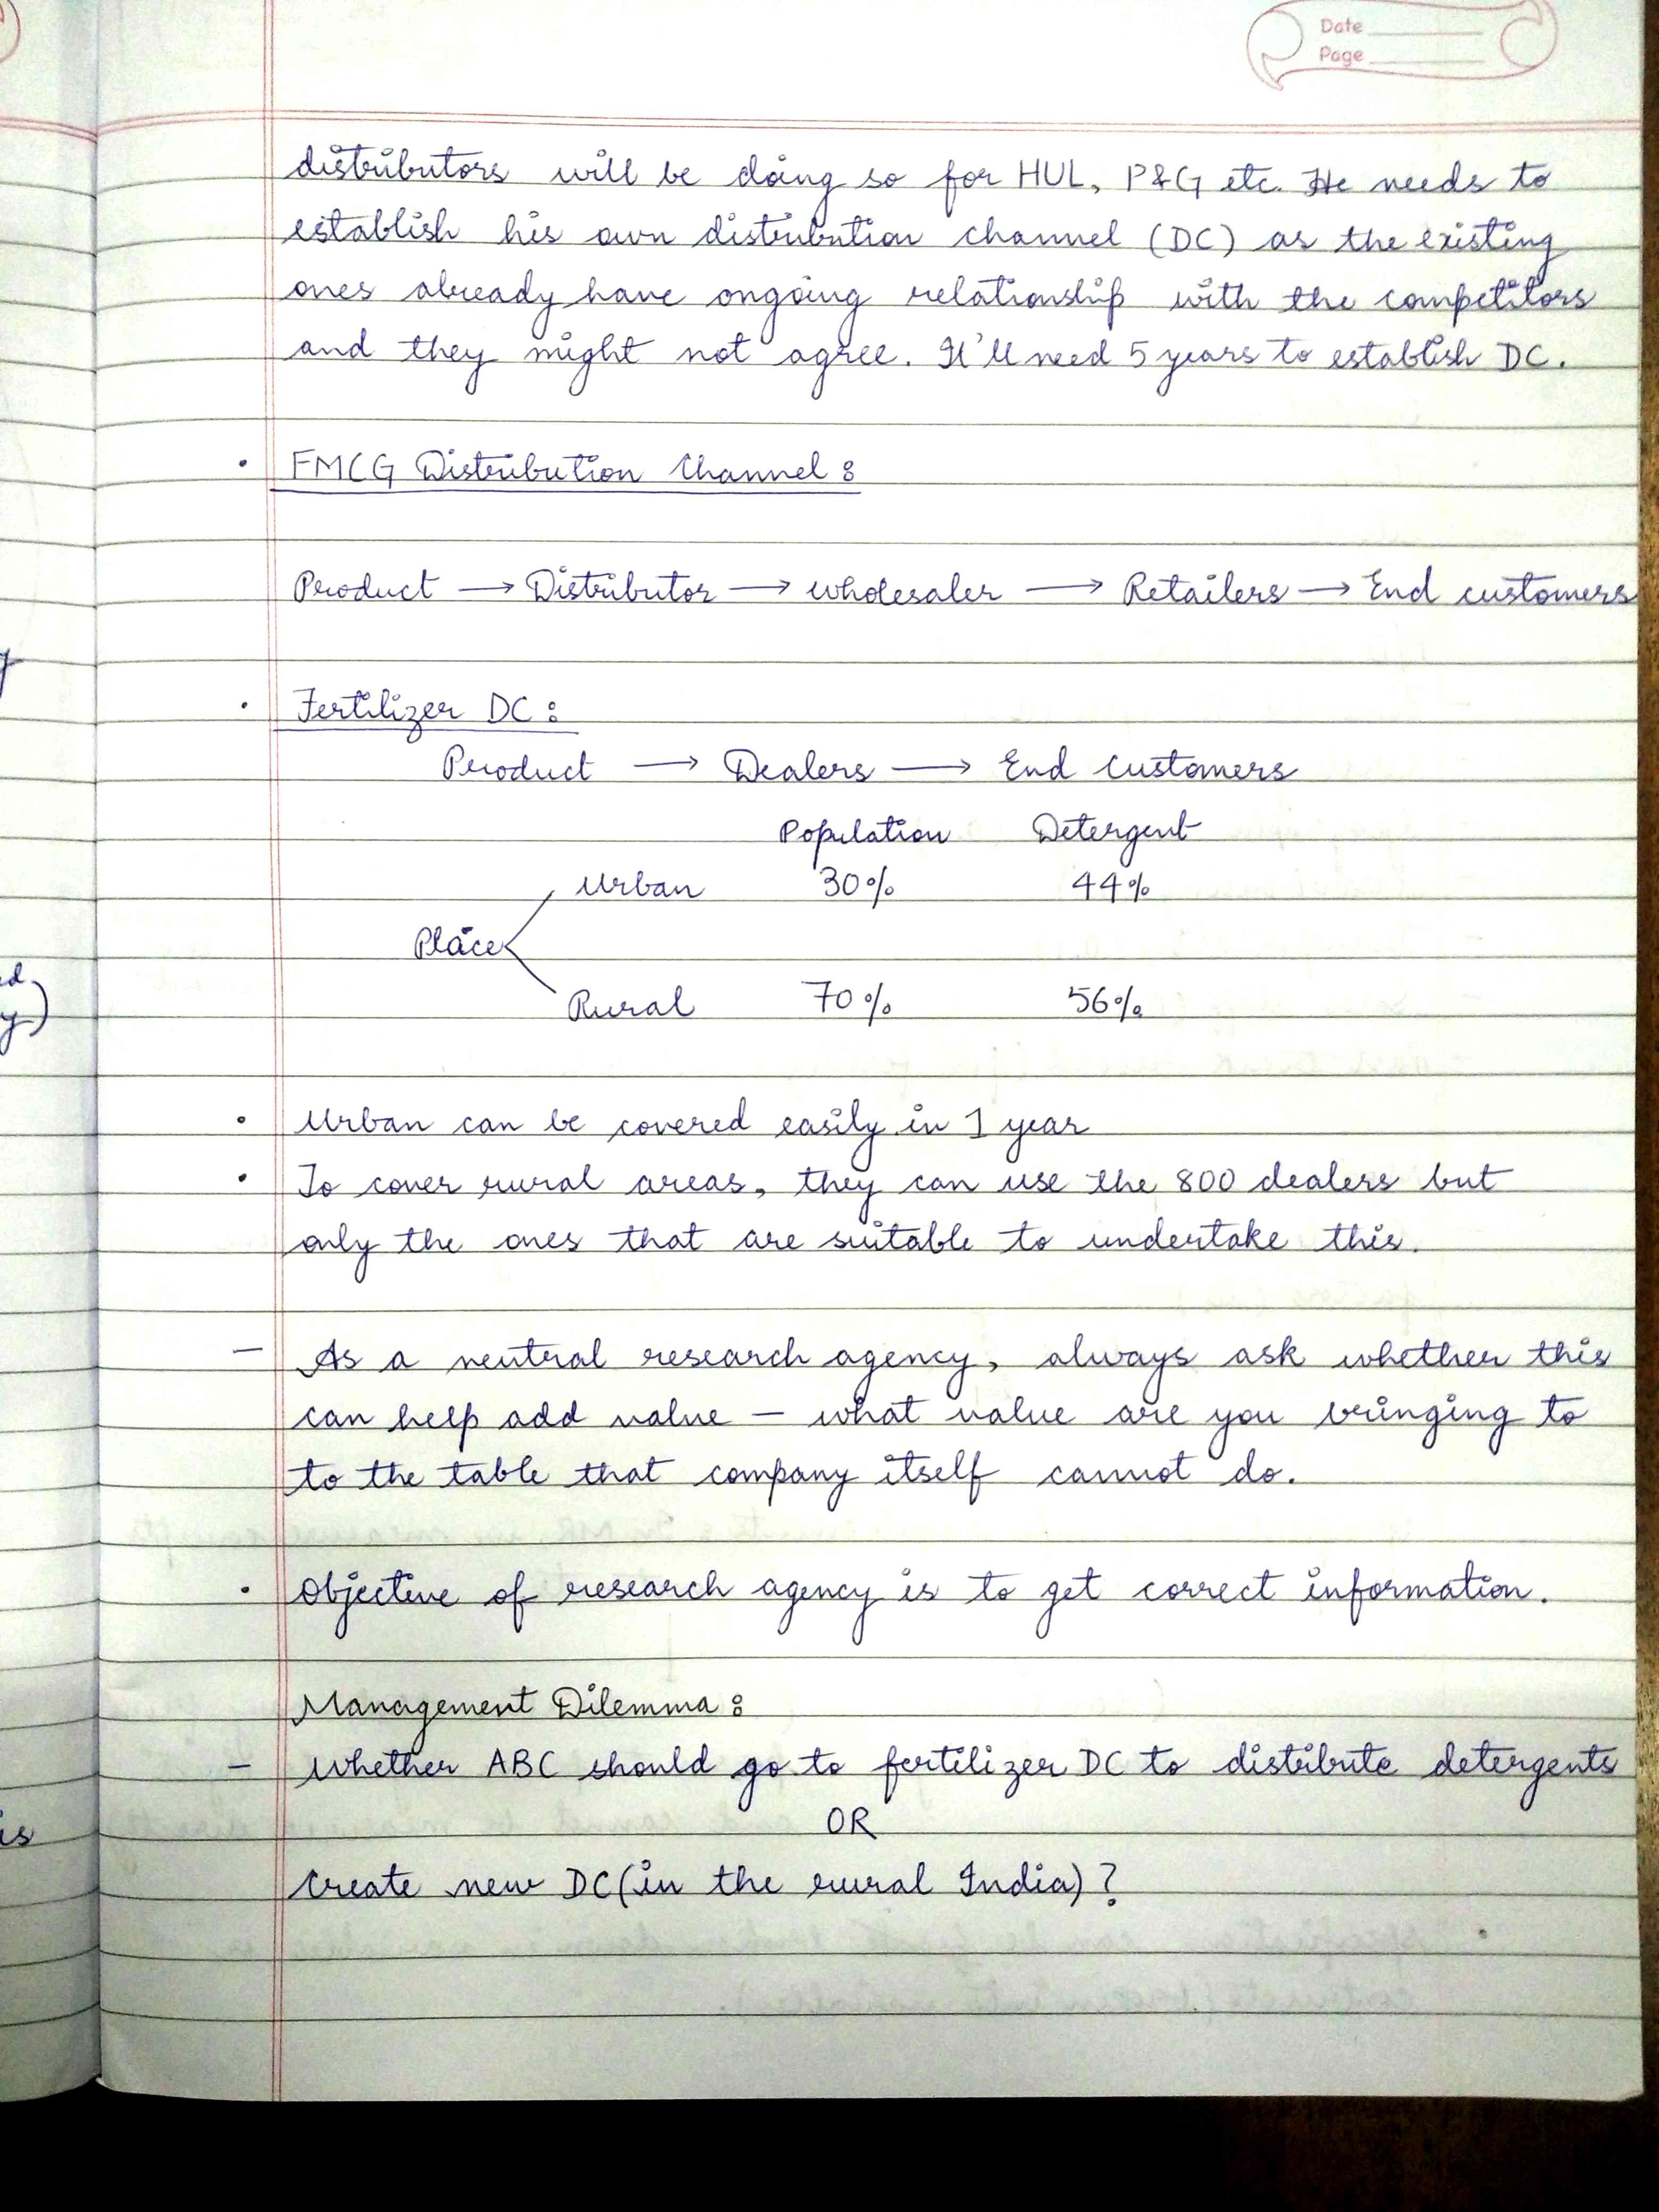 Date
Page
distributors will be doing so for HUL, P&G etc. He needs to
establish his own distribution channel (DC) as the existing
ones already have ongoing relationship with the competitors
and they might not agree. It'll need 5 years to establish DC.
• FMCG Distribution Channel :
Product → Distributor → Wholesaler → Retailers → End customers
• Fertilizer DC :
Product → Dealers → End customers
Population Detergent
Urban 30% 44%
Place
Rural 70% 56%
• Urban can be covered easily in 1 year
• To cover rural areas, they can use the 800 dealers but
only the ones that are suitable to undertake this.
– As a neutral research agency, always ask whether this
can help add value – what value are you bringing to
to the table that company itself cannot do.
• Objective of research agency is to get correct information.
Management Dilemma :
– Whether ABC should go to fertilizer DC to distribute detergents
OR
Create new DC (in the rural India) ?